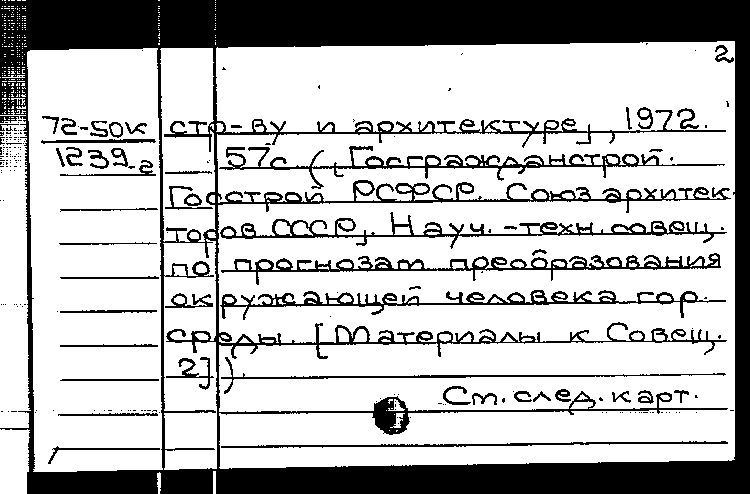 2
72-50к стр-ву и архитектуре], 1972.
1239-2 57с ([Госгражданстрой.
Госстрой РСФСР. Союз архитек-
торов СССР]. Науч.-техн. совещ.
по прогнозам преобразования
окружающей человека гор.
среды. [Материалы к Совещ.
2])
См. след. карт.